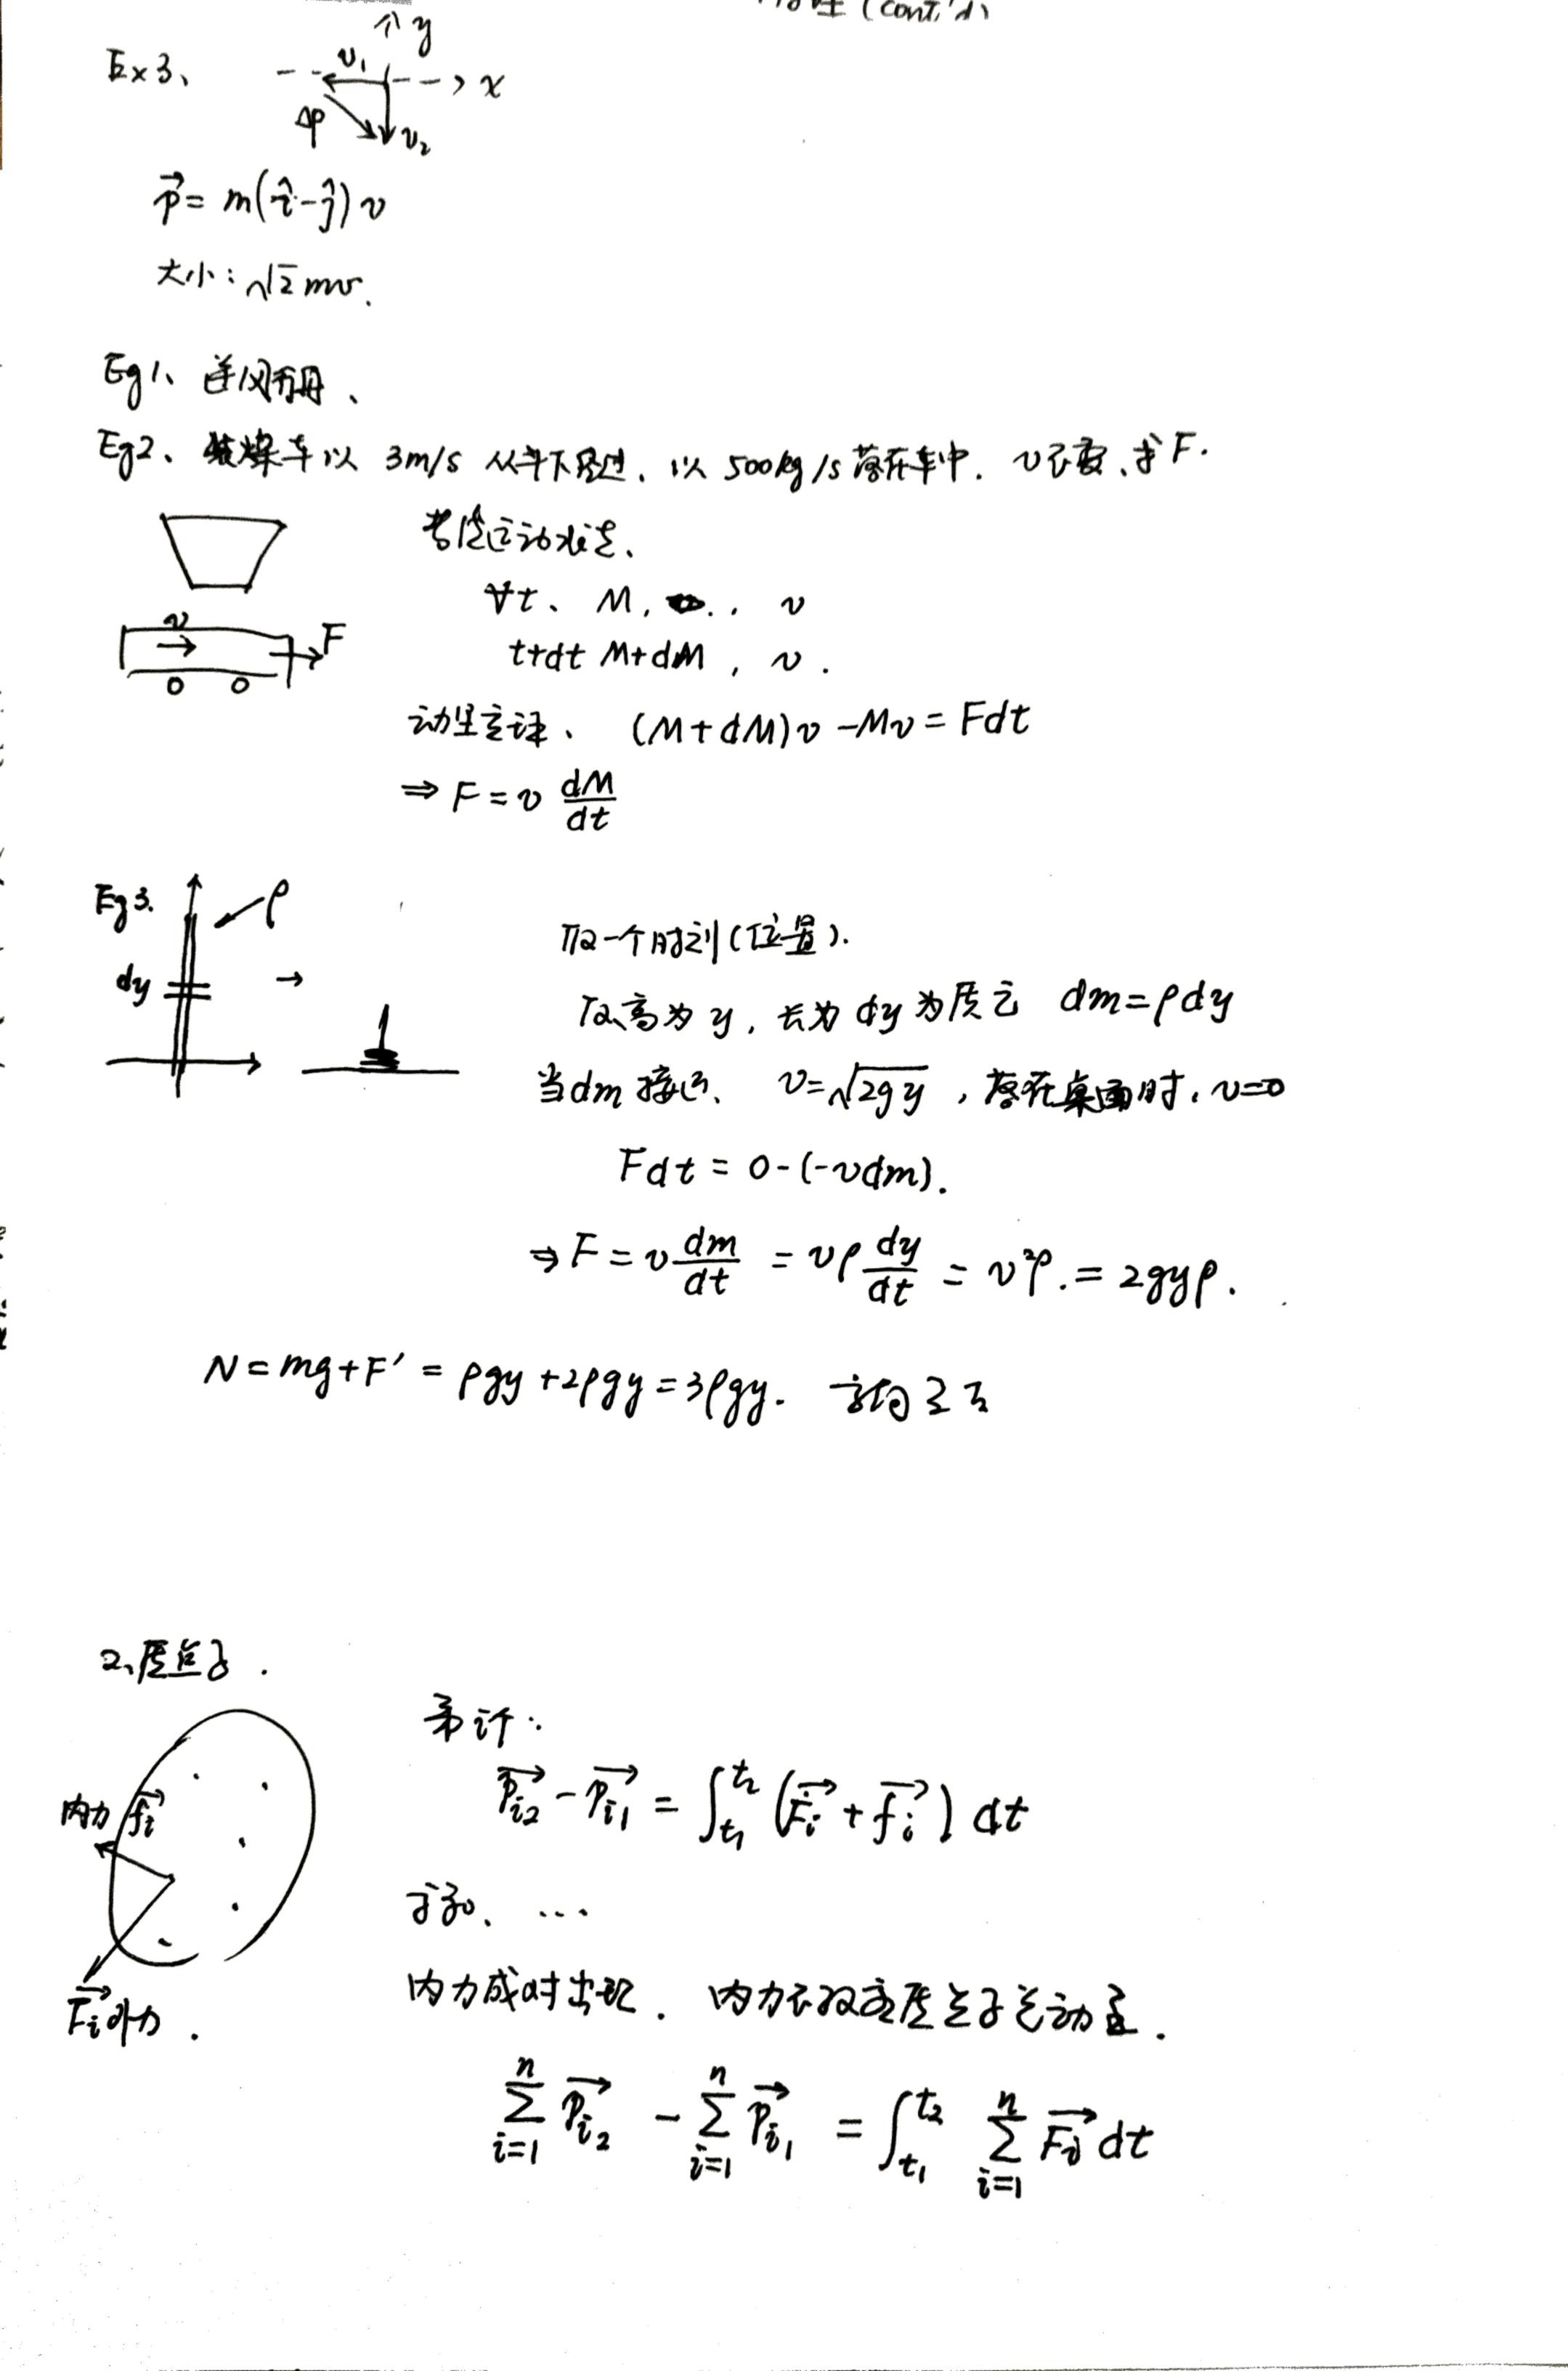 (cont'd)
Ex3、
y
v₁
x
Δp
v₂
p⃗ = m(î-ĵ)v
大小：√2 mv.
Eg1、逆风行舟、
Eg2、装煤车以 3m/s 从斗下经过、以 500kg/s 落在车中. v不变、求F.
考虑运动状态、
∀t、 M, v
v
F
t+dt M+dM, v.
动量定理、 (M+dM)v - Mv = Fdt
⇒ F = v dM/dt
Eg3.
ρ
dy
→
取一个时刻(位置).
取高为y, 长为dy为质元 dm=ρdy
当dm接近、 v=√2gy, 落在桌面时, v=0
Fdt = 0-(-vdm).
⇒ F = v dm/dt = vρ dy/dt = v²ρ. = 2gyρ.
N = mg+F′ = ρgy+2ρgy = 3ρgy. 方向向下
2、质点系.
内力 f⃗ᵢ
F⃗ᵢ外力.
第i个:
p⃗ᵢ₂ - p⃗ᵢ₁ = ∫_{t₁}^{t₂} (F⃗ᵢ + f⃗ᵢ) dt
求和、 ...
内力成对出现. 内力不改变质点系总动量.
∑_{i=1}^{n} p⃗ᵢ₂ - ∑_{i=1}^{n} p⃗ᵢ₁ = ∫_{t₁}^{t₂} ∑_{i=1}^{n} F⃗ᵢ dt